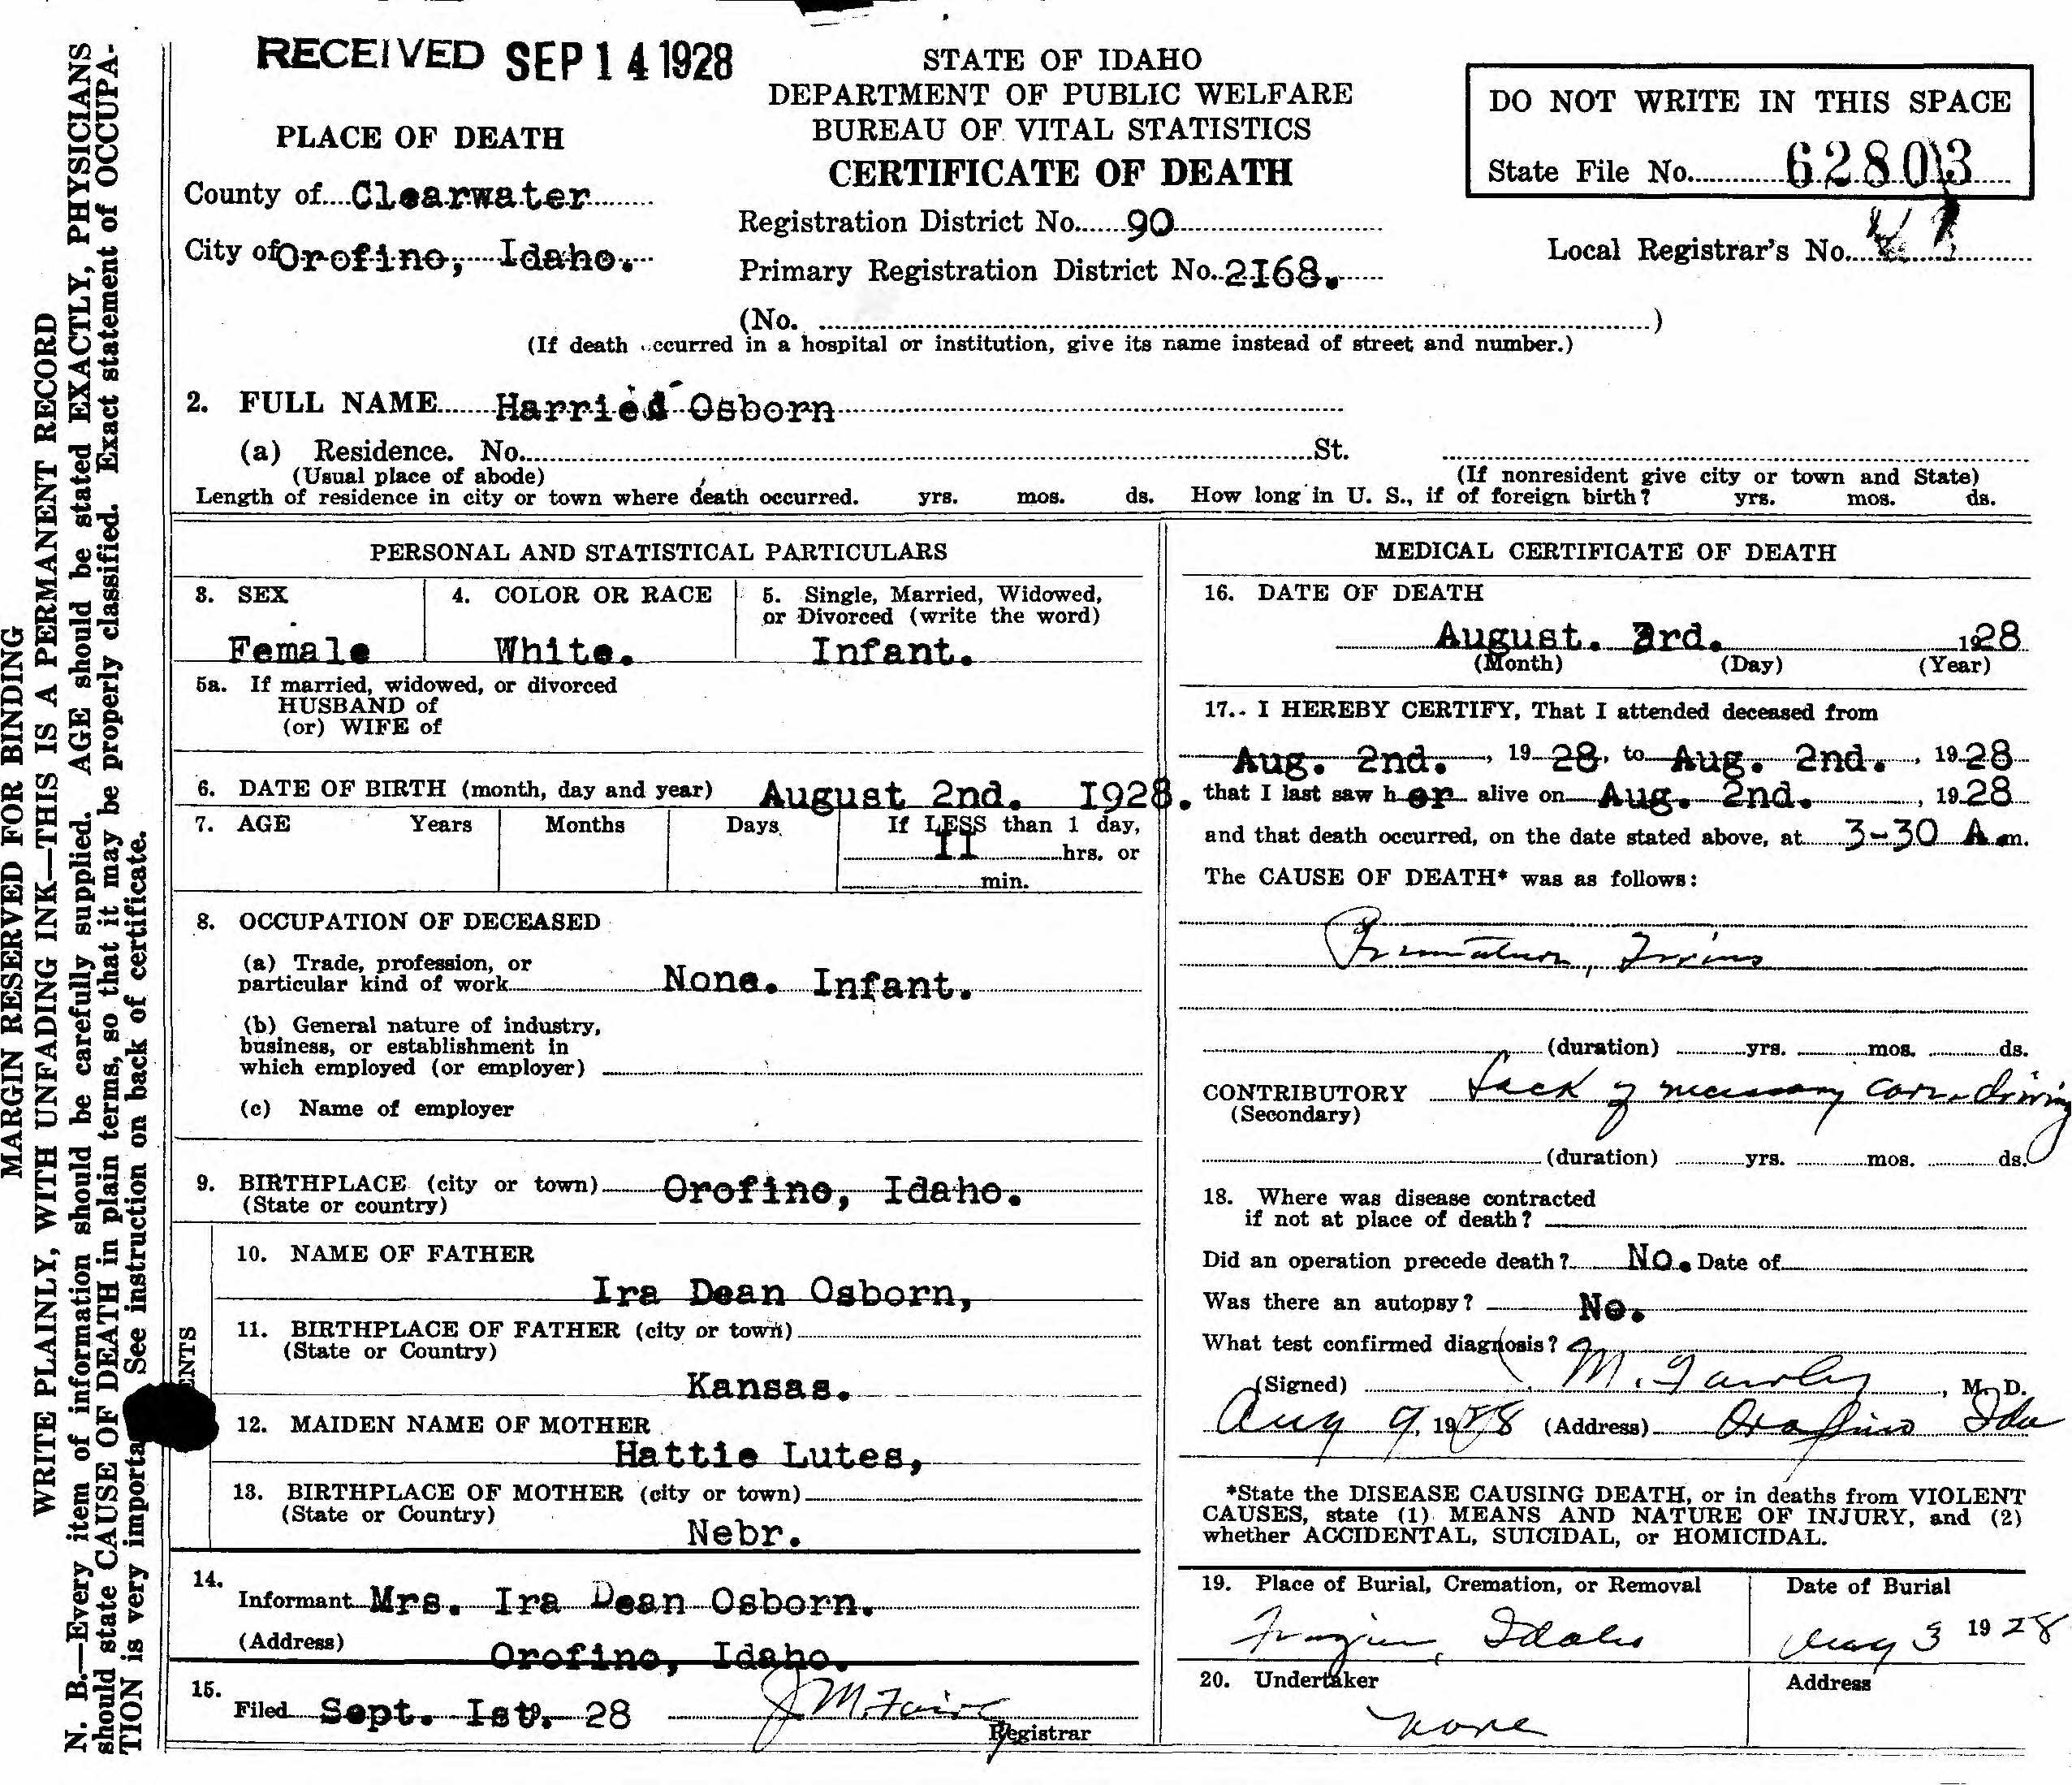 RECEIVED SEP 14 1928
STATE OF IDAHO
DEPARTMENT OF PUBLIC WELFARE
BUREAU OF VITAL STATISTICS
CERTIFICATE OF DEATH
DO NOT WRITE IN THIS SPACE
State File No. 62803
PLACE OF DEATH
County of Clearwater
City of Orofino, Idaho.
Registration District No. 90
Primary Registration District No. 2I68.
Local Registrar's No.
(No. )
(If death occurred in a hospital or institution, give its name instead of street and number.)
2. FULL NAME Harried Osborn
(a) Residence. No. St.
(Usual place of abode) (If nonresident give city or town and State)
Length of residence in city or town where death occurred. yrs. mos. ds. How long in U. S., if of foreign birth? yrs. mos. ds.
PERSONAL AND STATISTICAL PARTICULARS
3. SEX 4. COLOR OR RACE 5. Single, Married, Widowed,
or Divorced (write the word)
Female White. Infant.
5a. If married, widowed, or divorced
HUSBAND of
(or) WIFE of
6. DATE OF BIRTH (month, day and year) August 2nd. I928.
7. AGE Years Months Days If LESS than 1 day,
II hrs. or
min.
8. OCCUPATION OF DECEASED
(a) Trade, profession, or
particular kind of work None. Infant.
(b) General nature of industry,
business, or establishment in
which employed (or employer)
(c) Name of employer
9. BIRTHPLACE (city or town) Orofino, Idaho.
(State or country)
PARENTS
10. NAME OF FATHER
Ira Dean Osborn,
11. BIRTHPLACE OF FATHER (city or town)
(State or Country)
Kansas.
12. MAIDEN NAME OF MOTHER
Hattie Lutes,
13. BIRTHPLACE OF MOTHER (city or town)
(State or Country)
Nebr.
14.
Informant Mrs. Ira Dean Osborn.
(Address)
Orofino, Idaho.
15.
Filed Sept. Ist. 28 J M. Fairly
Registrar
MEDICAL CERTIFICATE OF DEATH
16. DATE OF DEATH
August. 3rd. 1928
(Month) (Day) (Year)
17. I HEREBY CERTIFY, That I attended deceased from
Aug. 2nd. , 19 28, to Aug. 2nd. , 19 28
that I last saw her alive on Aug. 2nd. , 19 28
and that death occurred, on the date stated above, at 3-30 A m.
The CAUSE OF DEATH* was as follows:
Premature, Twins
(duration) yrs. mos. ds.
CONTRIBUTORY Lack of necessary care
(Secondary)
(duration) yrs. mos. ds.
18. Where was disease contracted
if not at place of death?
Did an operation precede death? No. Date of
Was there an autopsy? No.
What test confirmed diagnosis?
(Signed) J. M. Fairly , M. D.
Aug 9, 1928 (Address) Orofino Ida
*State the DISEASE CAUSING DEATH, or in deaths from VIOLENT
CAUSES, state (1) MEANS AND NATURE OF INJURY, and (2)
whether ACCIDENTAL, SUICIDAL, or HOMICIDAL.
19. Place of Burial, Cremation, or Removal Date of Burial
Frazier, Idaho Aug 3 1928
20. Undertaker Address
none
MARGIN RESERVED FOR BINDING
WRITE PLAINLY, WITH UNFADING INK—THIS IS A PERMANENT RECORD
N. B.—Every item of information should be carefully supplied. AGE should be stated EXACTLY, PHYSICIANS
should state CAUSE OF DEATH in plain terms, so that it may be properly classified. Exact statement of OCCUPA-
TION is very important. See instruction on back of certificate.